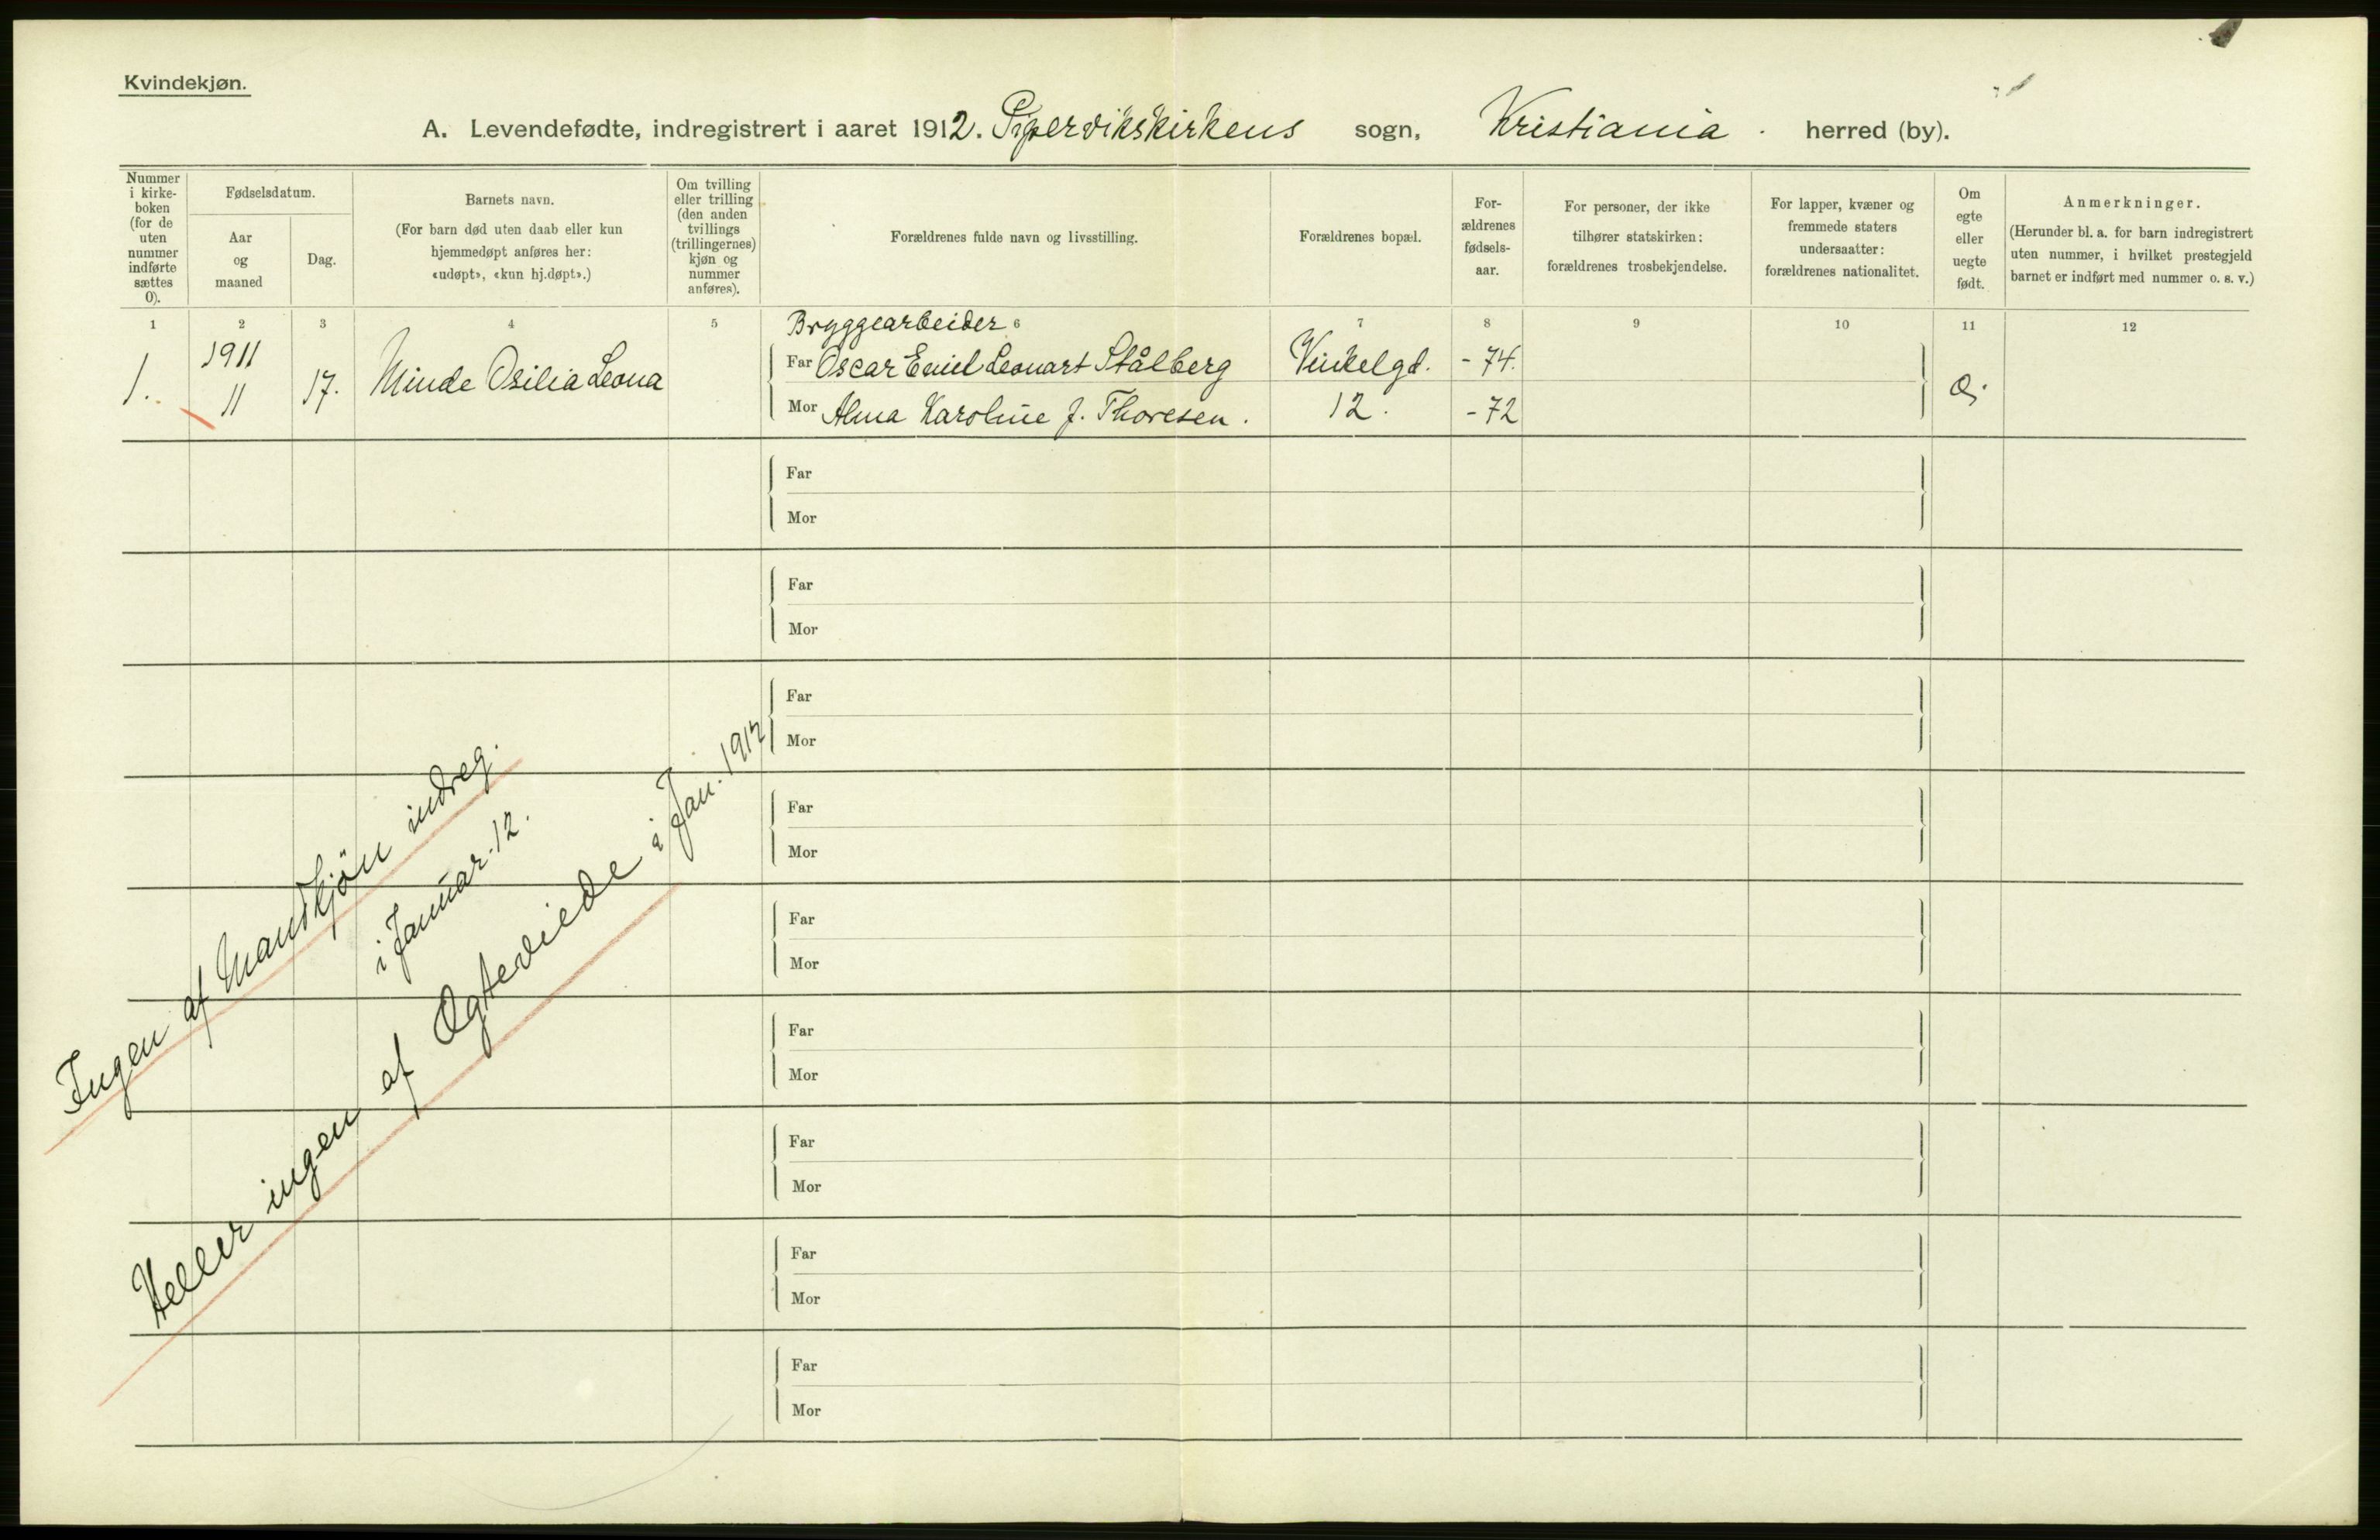 Kvindekjøn.
A. Levendefødte, indregistrert i aaret 1912. Pipervikskirkens sogn, Kristiania. herred (by).
Nummer i kirke-boken (for de uten nummer indførte sættes 0).
Fødselsdatum.
Aar og maaned
Dag.
Barnets navn.
(For barn død uten daab eller kun hjemmedøpt anføres her: «udøpt», «kun hj.døpt».)
Om tvilling eller trilling (den anden tvillings (trillingernes) kjøn og nummer anføres).
Forældrenes fulde navn og livsstilling.
Forældrenes bopæl.
For-ældrenes fødsels-aar.
For personer, der ikke tilhører statskirken: forældrenes trosbekjendelse.
For lapper, kvæner og fremmede staters undersaatter: forældrenes nationalitet.
Om egte eller uegte født.
Anmerkninger.
(Herunder bl. a. for barn indregistrert uten nummer, i hvilket prestegjeld barnet er indført med nummer o. s. v.)
1 2 3 4 5 6 7 8 9 10 11 12
Bryggearbeider
1. 1911 11 17. Minde Osilia Leona
Far Oscar Emil Leonart Stålberg Vinkelgd. - 74.
Mor Alma Karoline f. Thoresen. 12. - 72
Far
Mor
Far
Mor
Far
Mor
Far
Mor
Far
Mor
Far
Mor
Far
Mor
Far
Mor
Far
Mor
Ingen af Mandkjön indreg.
i Januar. 12.
Heller ingen af Ægteviede i Jan. 1912